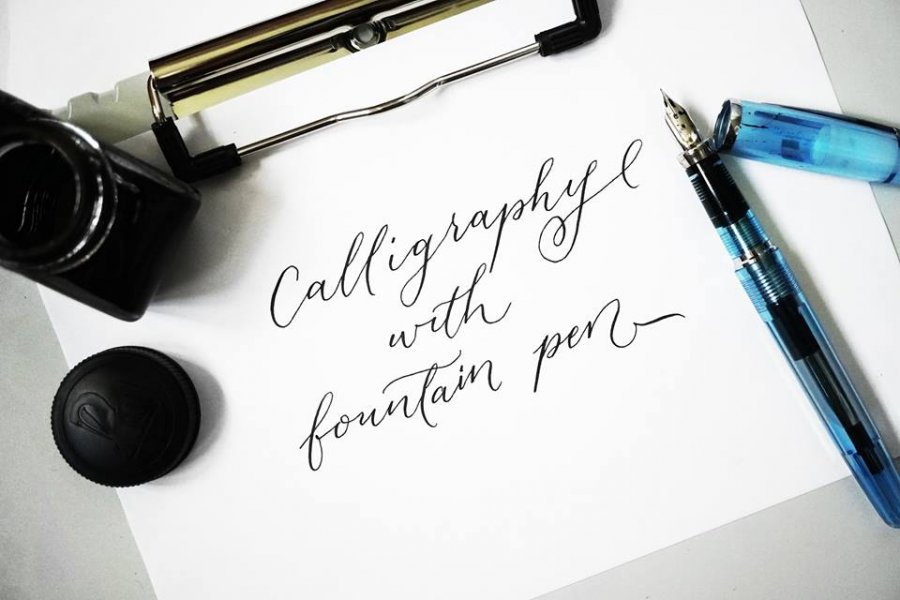 Calligraphy
with
fountain pen